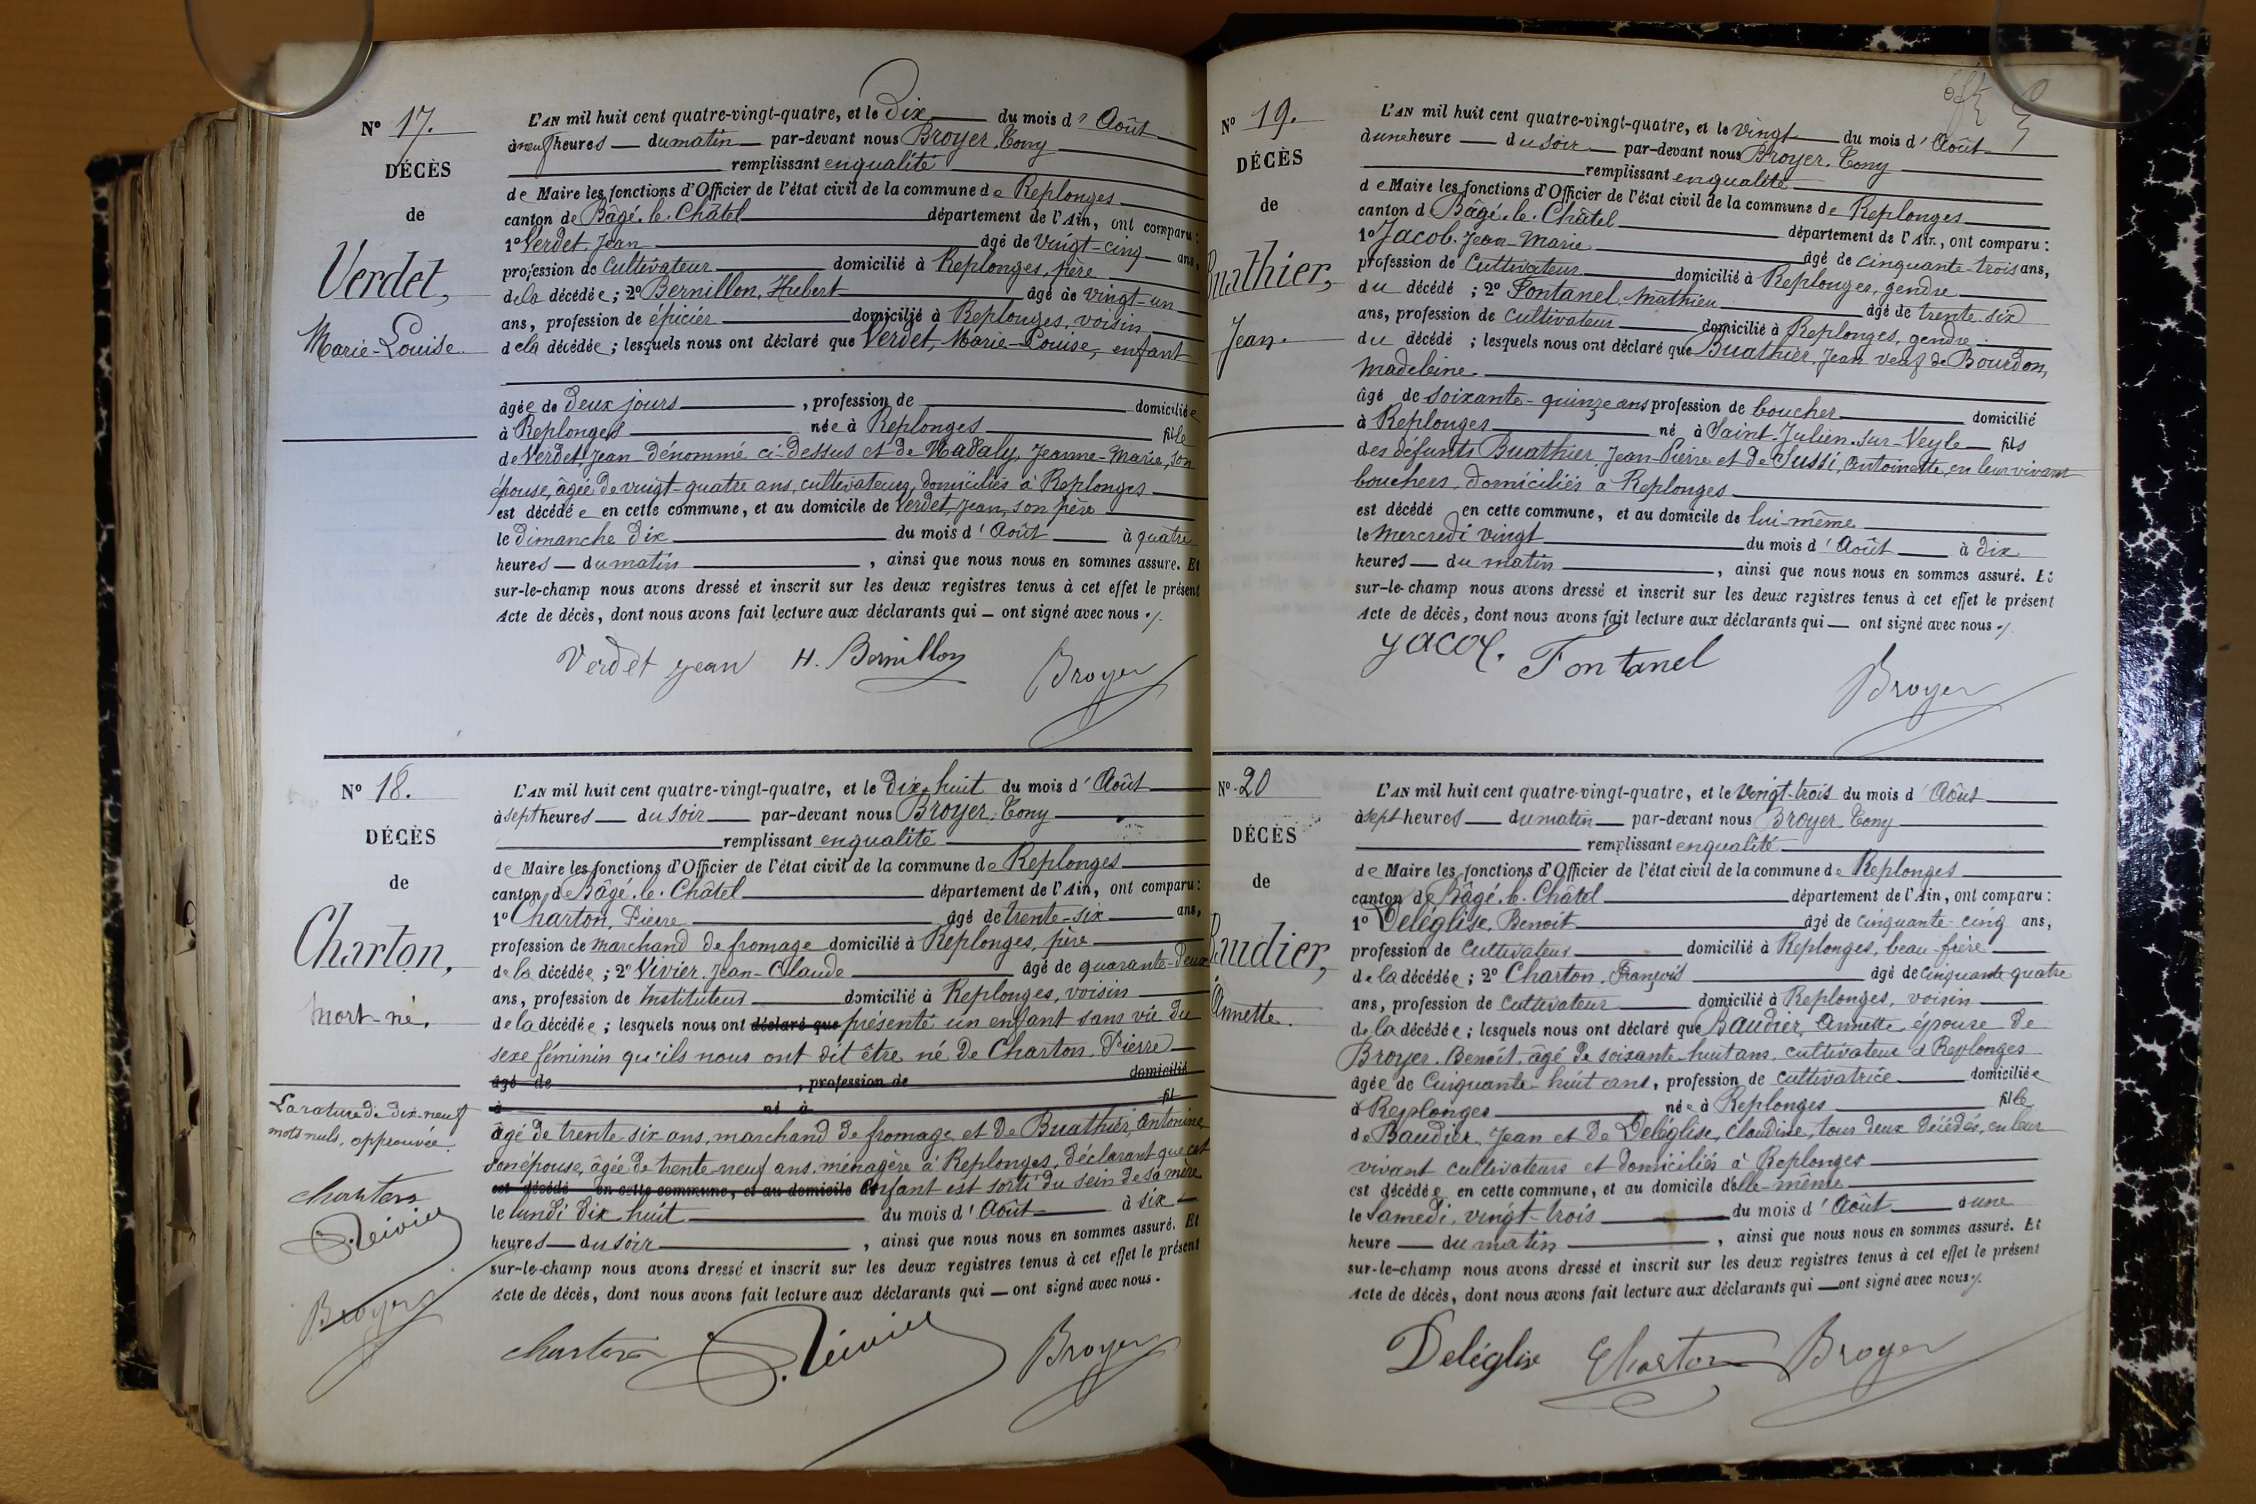 N° 17.
DÉCÈS
de
Verdet,
Marie-Louise
L'AN mil huit cent quatre-vingt-quatre, et le Dix du mois d'Août
à neuf heures du matin par-devant nous Broyer, Tony
remplissant en qualité
de Maire les fonctions d'Officier de l'état civil de la commune de Replonges
canton de Bâgé-le-Châtel département de l'Ain, ont comparu :
1° Verdet, Jean âgé de vingt-cinq ans,
profession de cultivateur domicilié à Replonges, père
de la décédée ; 2° Bernillon, Hubert âgé de vingt-un
ans, profession de épicier domicilié à Replonges, voisin
de la décédée ; lesquels nous ont déclaré que Verdet, Marie-Louise, enfant
âgée de deux jours, profession de domiciliée
à Replonges née à Replonges fille
de Verdet, Jean dénommé ci-dessus et de Jeanne-Marie, son
épouse, âgée de vingt-quatre ans, cultivateurs, domiciliés à Replonges
est décédée en cette commune, et au domicile de Verdet, Jean, son père
le dimanche dix du mois d'Août à quatre
heures du matin, ainsi que nous nous en sommes assuré. Et
sur-le-champ nous avons dressé et inscrit sur les deux registres tenus à cet effet le présent
Acte de décès, dont nous avons fait lecture aux déclarants qui — ont signé avec nous ./.
Verdet jean H. Bernillon Broyer
N° 18.
DÉCÈS
de
Charton,
Mort-né.
La rature de dix-neuf
mots nuls, approuvée.
charton
Vivier
Broyer
L'AN mil huit cent quatre-vingt-quatre, et le Dix-huit du mois d'Août
à sept heures du soir par-devant nous Broyer, Tony
remplissant en qualité
de Maire les fonctions d'Officier de l'état civil de la commune de Replonges
canton de Bâgé-le-Châtel département de l'Ain, ont comparu :
1° Charton, Pierre âgé de trente-six ans,
profession de marchand de fromage domicilié à Replonges, père
de la décédée ; 2° Vivier, Jean-Claude âgé de quarante-deux
ans, profession de Instituteur domicilié à Replonges, voisin
de la décédée ; lesquels nous ont déclaré que présenté un enfant sans vie du
sexe féminin qu'ils nous ont dit être né de Charton, Pierre
âgé de , profession de domicilié
à né à fil
âgé de trente six ans, marchand de fromage et de Buathier, Antonine
son épouse, âgée de trente-neuf ans, ménagère à Replonges, déclarant que cet
est décédé en cette commune, et au domicile enfant est sorti du sein de sa mère
le lundi dix huit du mois d'Août à six
heures du soir, ainsi que nous nous en sommes assuré. Et
sur-le-champ nous avons dressé et inscrit sur les deux registres tenus à cet effet le présent
Acte de décès, dont nous avons fait lecture aux déclarants qui — ont signé avec nous.
charton Vivier Broyer
N° 19.
DÉCÈS
de
Buathier,
Jean
L'AN mil huit cent quatre-vingt-quatre, et le vingt du mois d'Août
à une heure du soir par-devant nous Broyer, Tony
remplissant en qualité
de Maire les fonctions d'Officier de l'état civil de la commune de Replonges
canton d Bâgé-le-Châtel département de l'Ain, ont comparu :
1° Jacob, Jean-Marie âgé de cinquante-trois ans,
profession de cultivateur domicilié à Replonges, gendre
du décédé ; 2° Fontanel, Mathieu âgé de trente six
ans, profession de cultivateur domicilié à Replonges, gendre
du décédé ; lesquels nous ont déclaré que Buathier, Jean veuf de Bourdon,
Madeleine
âgé de soixante-quinze ans profession de boucher domicilié
à Replonges né à Saint-Julien-sur-Veyle fils
des défunts Buathier, Jean-Pierre et de Sussi, Antoinette, en leur vivant
bouchers, domiciliés à Replonges
est décédé en cette commune, et au domicile de lui-même
le Mercredi vingt du mois d'Août à dix
heures du matin, ainsi que nous nous en sommes assuré. Et
sur-le-champ nous avons dressé et inscrit sur les deux registres tenus à cet effet le présent
Acte de décès, dont nous avons fait lecture aux déclarants qui — ont signé avec nous ./.
jacob. Fontanel Broyer
N° 20
DÉCÈS
de
Baudier,
Annette.
L'AN mil huit cent quatre-vingt-quatre, et le vingt-trois du mois d'Août
à sept heures du matin par-devant nous Broyer, Tony
remplissant en qualité
de Maire les fonctions d'Officier de l'état civil de la commune de Replonges
canton de Bâgé-le-Châtel département de l'Ain, ont comparu :
1° Deléglise, Benoit âgé de cinquante-cinq ans,
profession de cultivateur domicilié à Replonges, beau-frère
de la décédée ; 2° Charton, François âgé de cinquante quatre
ans, profession de cultivateur domicilié à Replonges, voisin
de la décédée ; lesquels nous ont déclaré que Baudier, Annette, épouse de
Broyer, Benoit, âgé de soixante huit ans, cultivateur à Replonges
âgée de cinquante-huit ans, profession de cultivatrice domiciliée
à Replonges née à Replonges fille
de Baudier, Jean et de Deléglise, Claudine, tous deux décédés, en leur
vivant cultivateurs et domiciliés à Replonges
est décédée en cette commune, et au domicile d'elle-même
le samedi, vingt-trois du mois d'Août à une
heure du matin, ainsi que nous nous en sommes assuré. Et
sur-le-champ nous avons dressé et inscrit sur les deux registres tenus à cet effet le présent
Acte de décès, dont nous avons fait lecture aux déclarants qui — ont signé avec nous ./.
Deléglise Charton Broyer